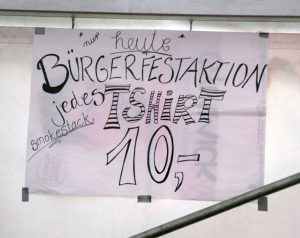 "nur" heute
BÜRGERFESTAKTION
jedes TSHiRT
smokestack
10,-